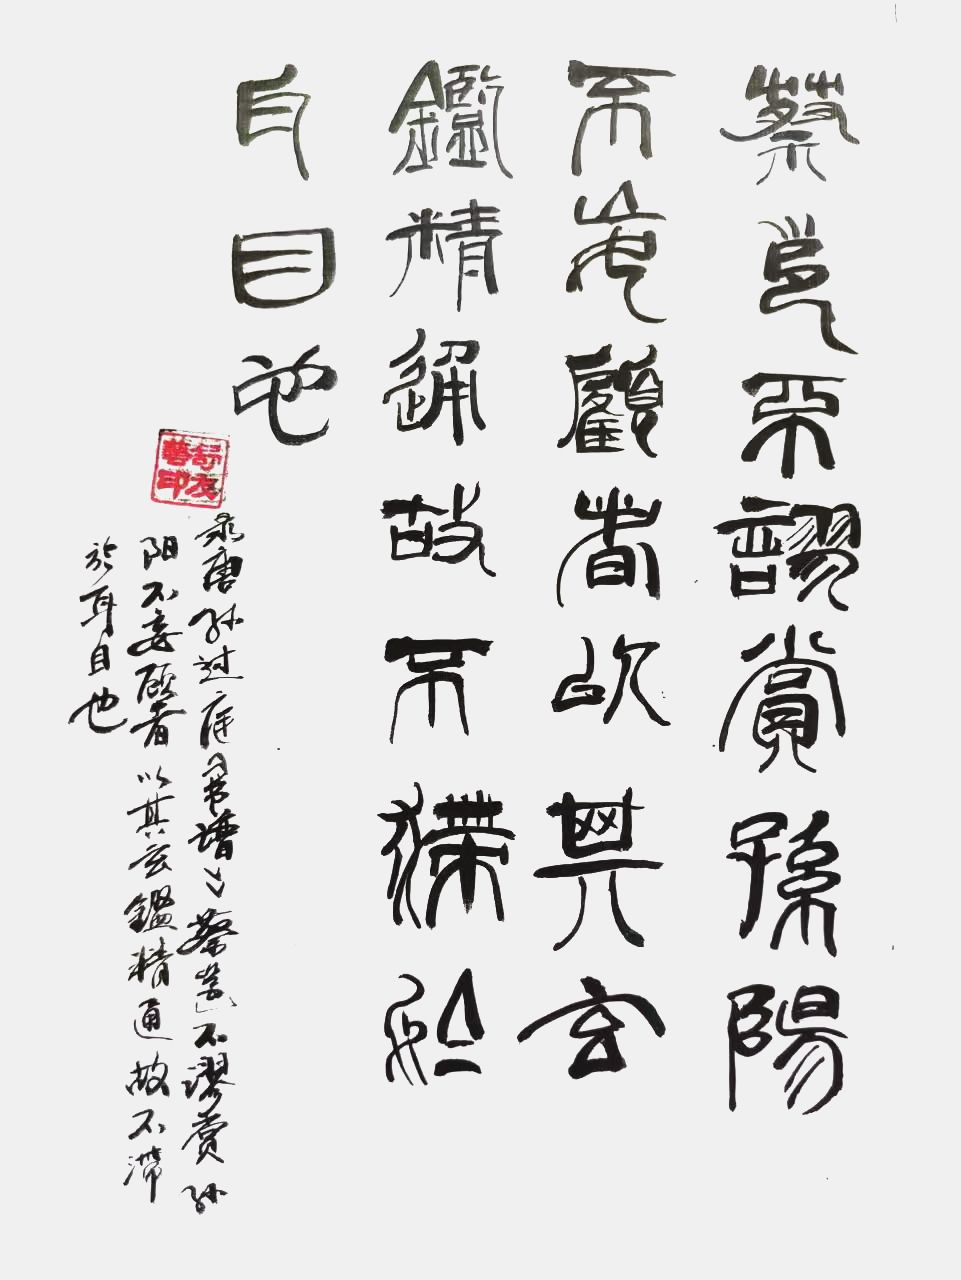 蔡邕不謬賞孫陽
不妄顧者以其玄
鑑精通故不滯於
耳目也
录唐孙过庭書譜蔡邕不謬賞孙
阳不妄顾者以其玄鑑精通故不滯
於耳目也
舒友
藝印